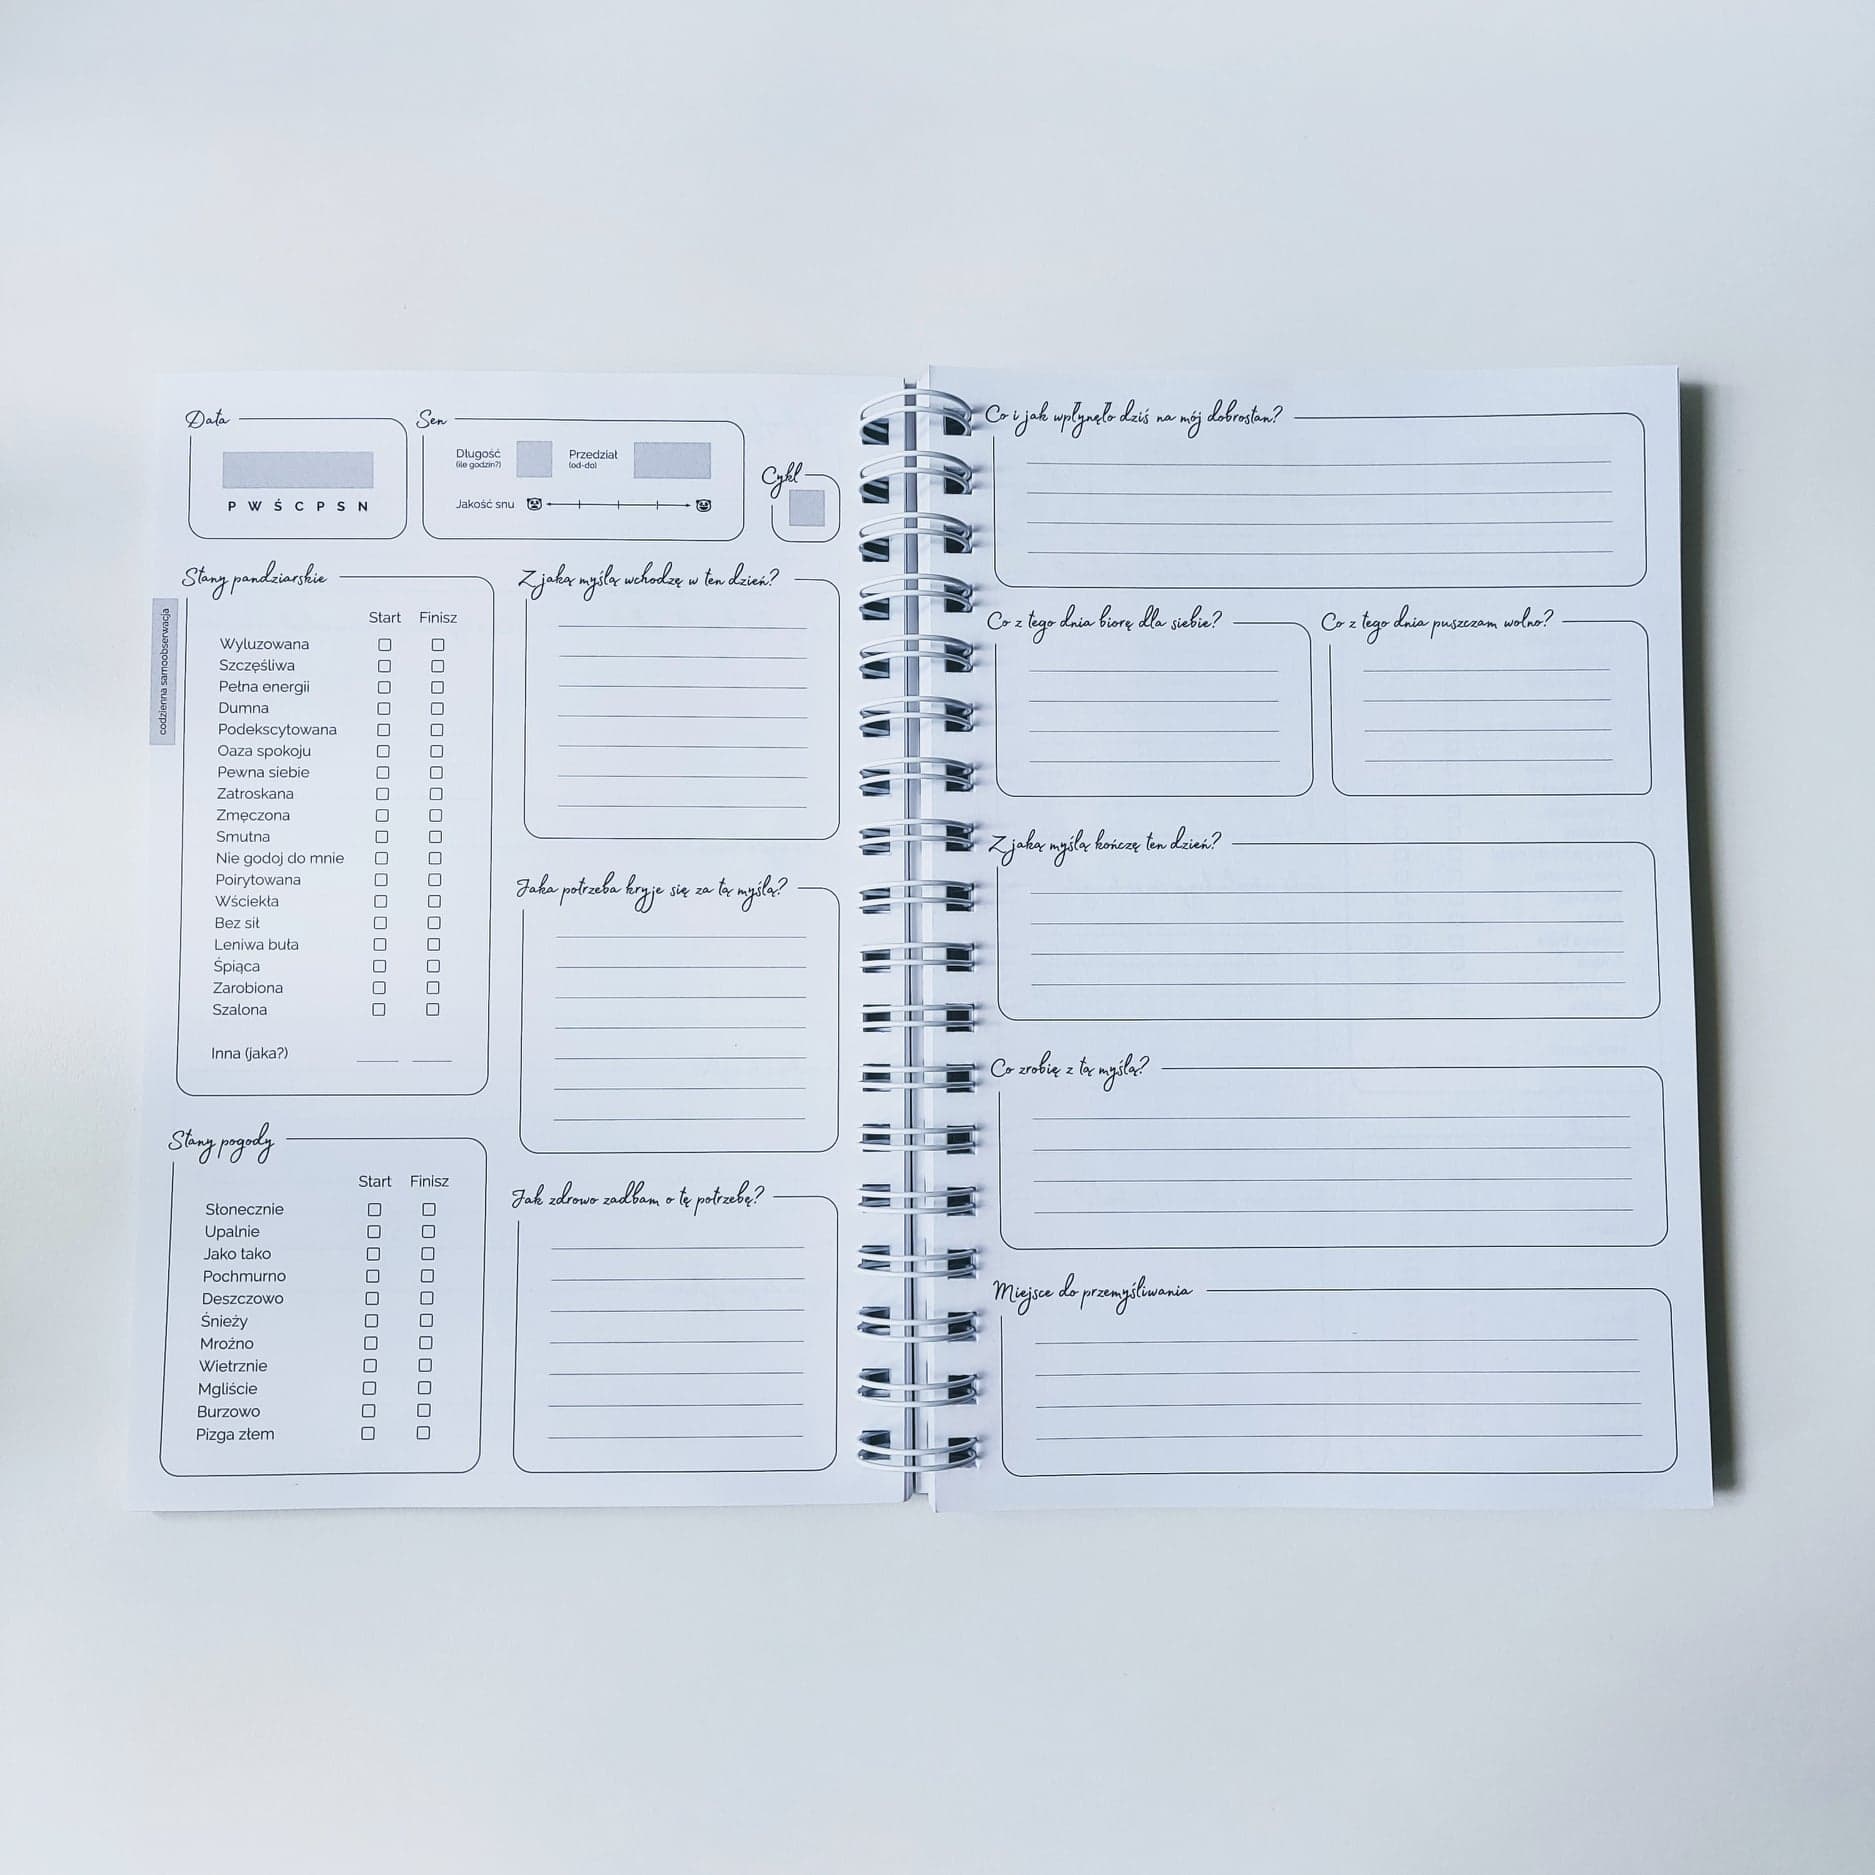 Data
P W Ś C P S N
Sen
Długość
(ile godzin?)
Przedział
(od-do)
Jakość snu
Cykl
codzienna samoobserwacja
Stany pandziarskie
Start Finisz
Wyluzowana
Szczęśliwa
Pełna energii
Dumna
Podekscytowana
Oaza spokoju
Pewna siebie
Zatroskana
Zmęczona
Smutna
Nie godoj do mnie
Poirytowana
Wściekła
Bez sił
Leniwa buła
Śpiąca
Zarobiona
Szalona
Inna (jaka?)
Stany pogody
Start Finisz
Słonecznie
Upalnie
Jako tako
Pochmurno
Deszczowo
Śnieży
Mroźno
Wietrznie
Mgliście
Burzowo
Pizga złem
Z jaką myślą wchodzę w ten dzień?
Jaka potrzeba kryje się za tą myślą?
Jak zdrowo zadbam o tę potrzebę?
Co i jak wpłynęło dziś na mój dobrostan?
Co z tego dnia biorę dla siebie?
Co z tego dnia puszczam wolno?
Z jaką myślą kończę ten dzień?
Co zrobię z tą myślą?
Miejsce do przemyśliwania